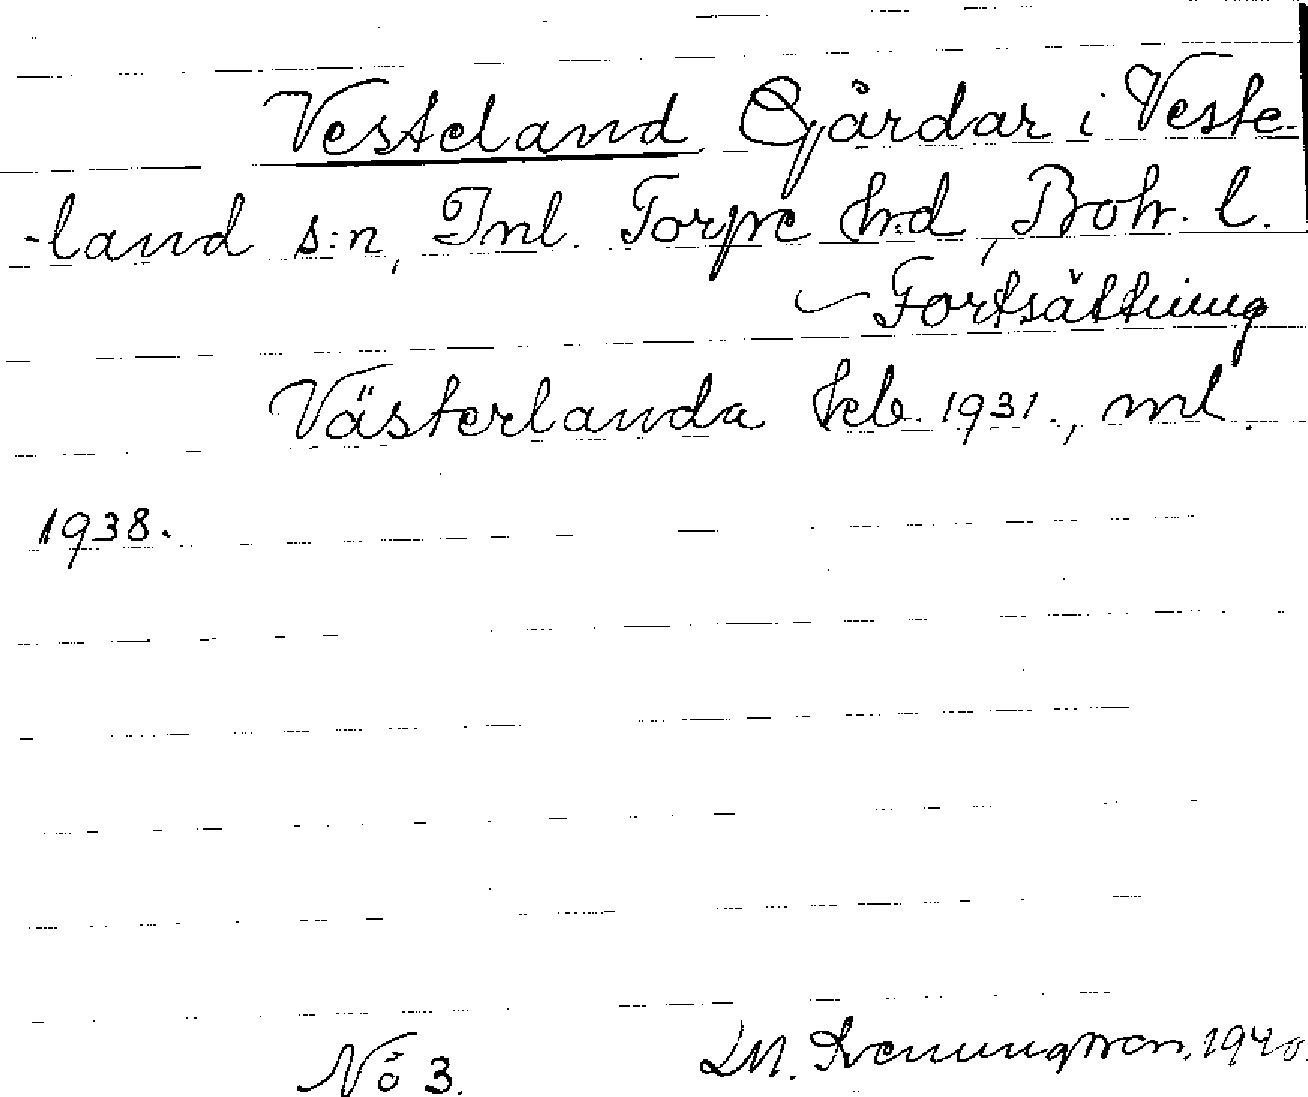 Vesteland Gårdar i Veste
-land s:n, Inl. Torpe h:d, Boh. l.
Fortsättning
Västerlanda feb. 1931., ml.
1938.
No 3. 1940.